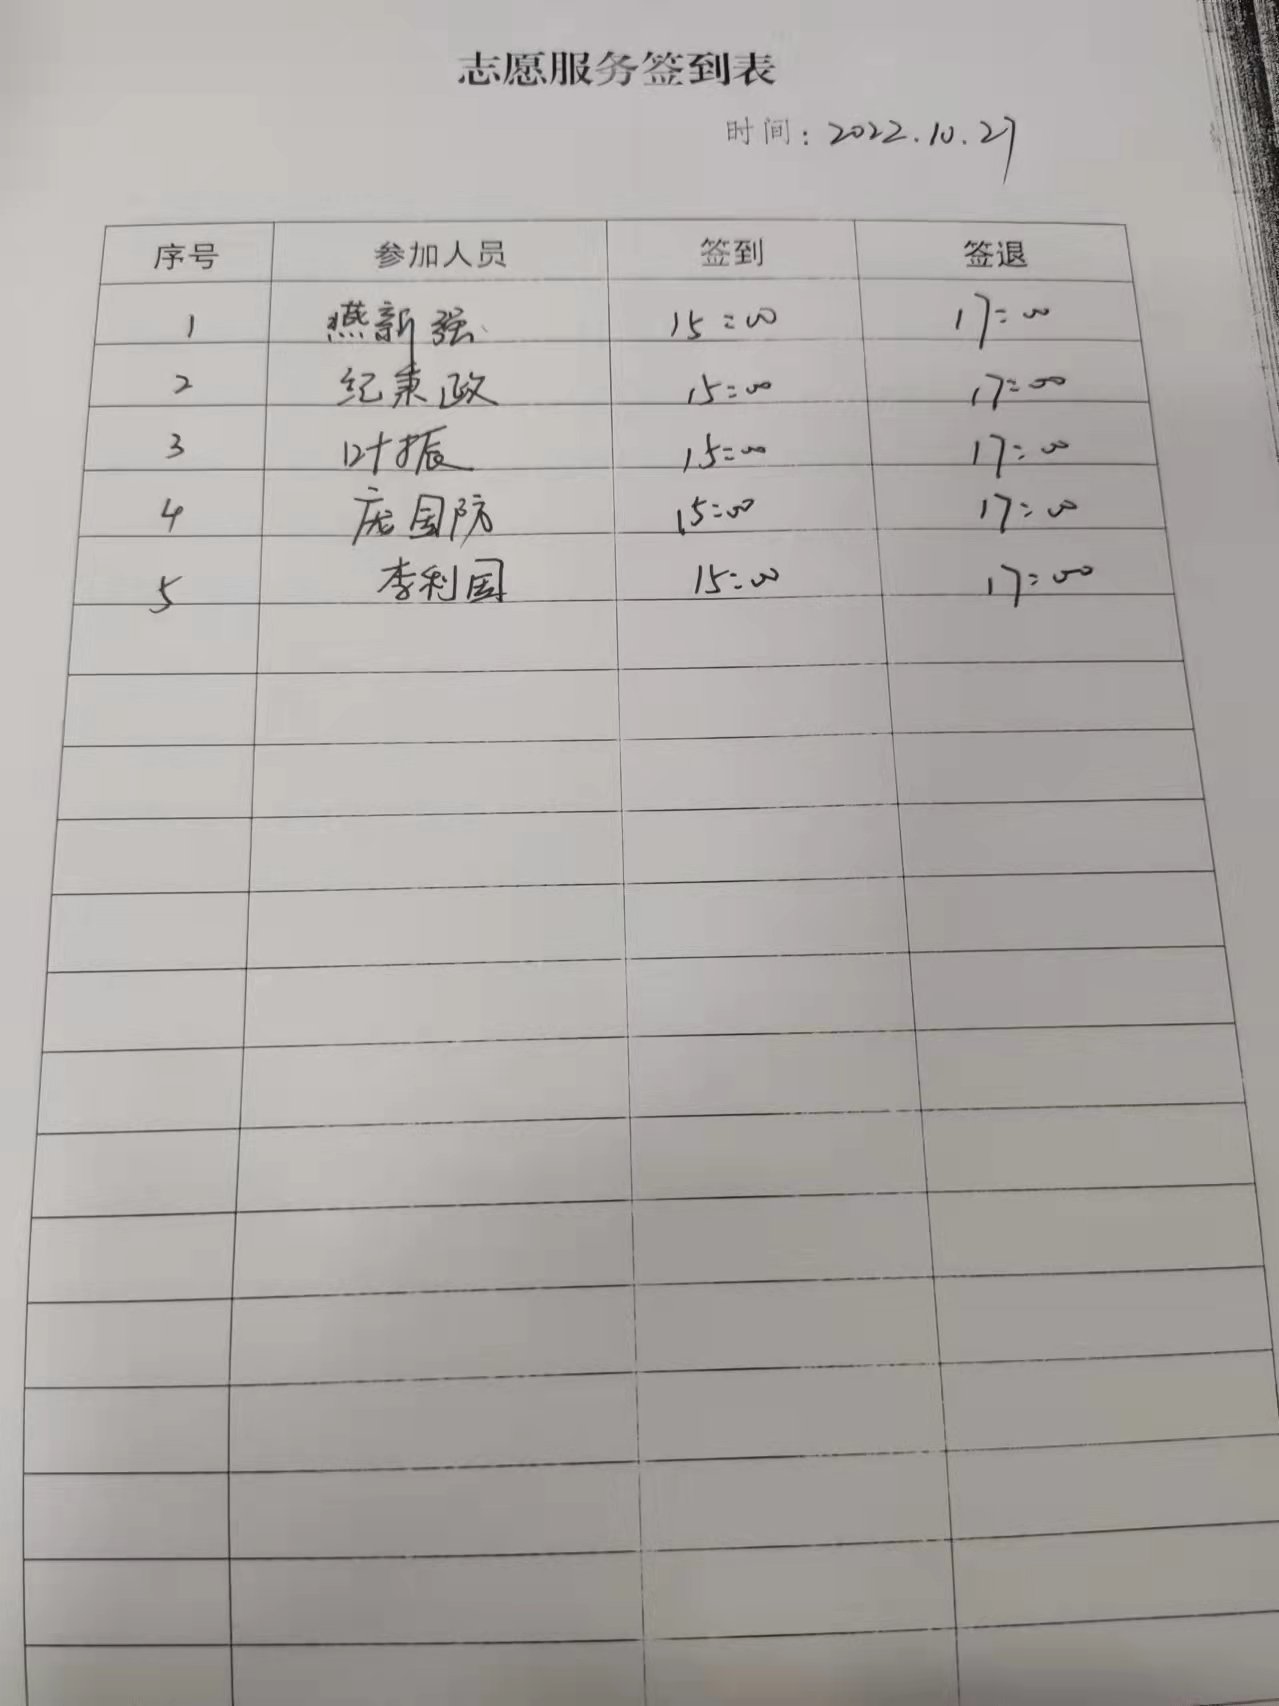 志愿服务签到表
时间：2022.10.27
序号 参加人员 签到 签退
1 燕新强 15:00 17:00
2 纪秉政 15:00 17:00
3 叶振 15:00 17:00
4 庞国防 15:00 17:00
5 李利国 15:00 17:00